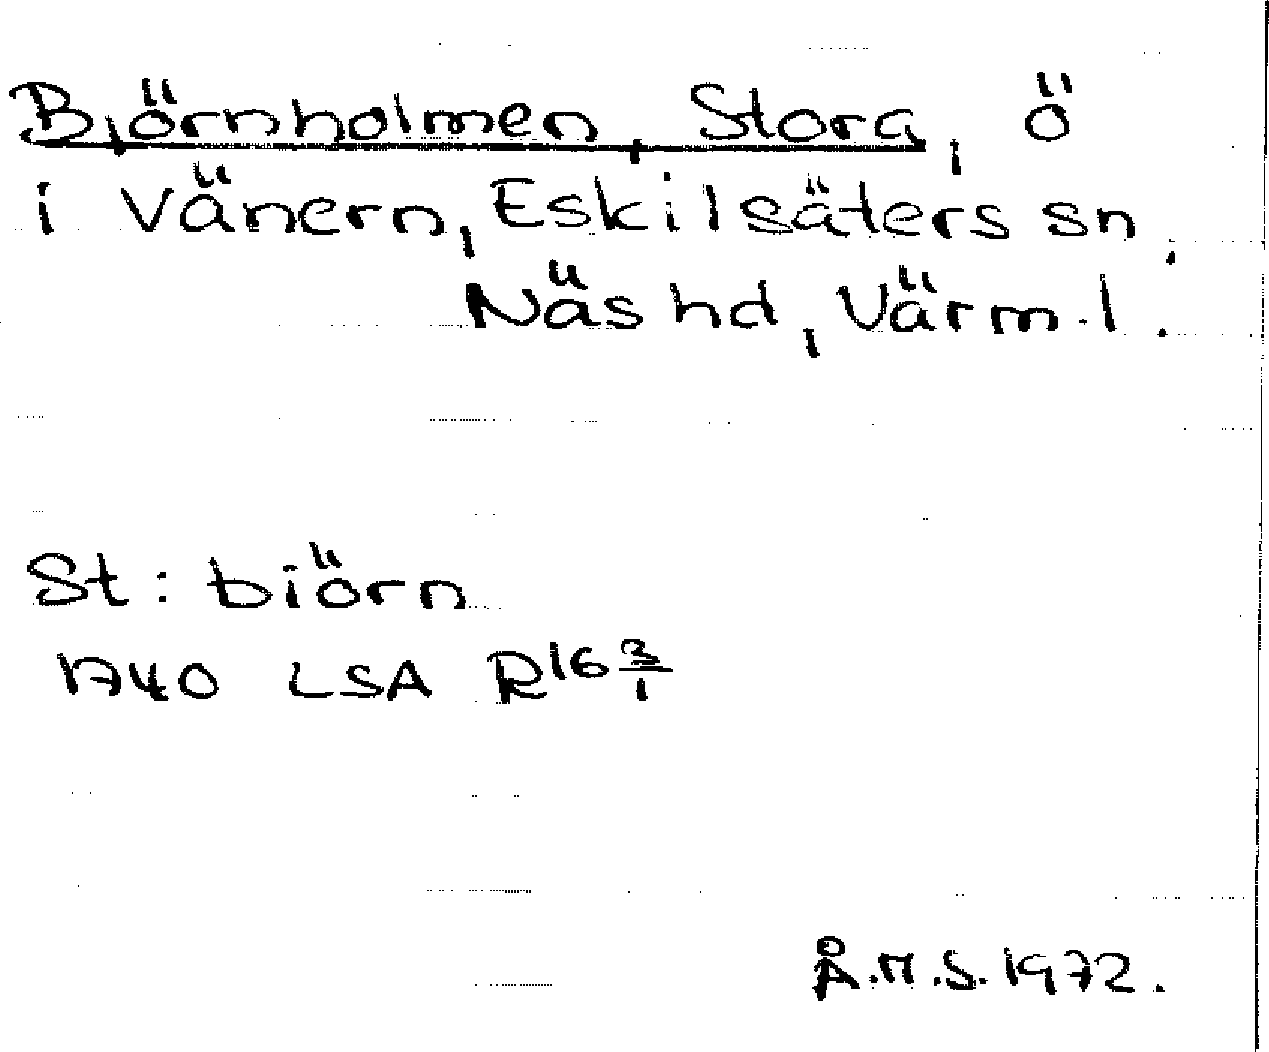 Björnholmen, Stora, ö
i Vänern, Eskilsäters sn,
Näs hd, Värm.l.
St: biörn
1740 LSA R16 3/1
Å.M.S. 1972.